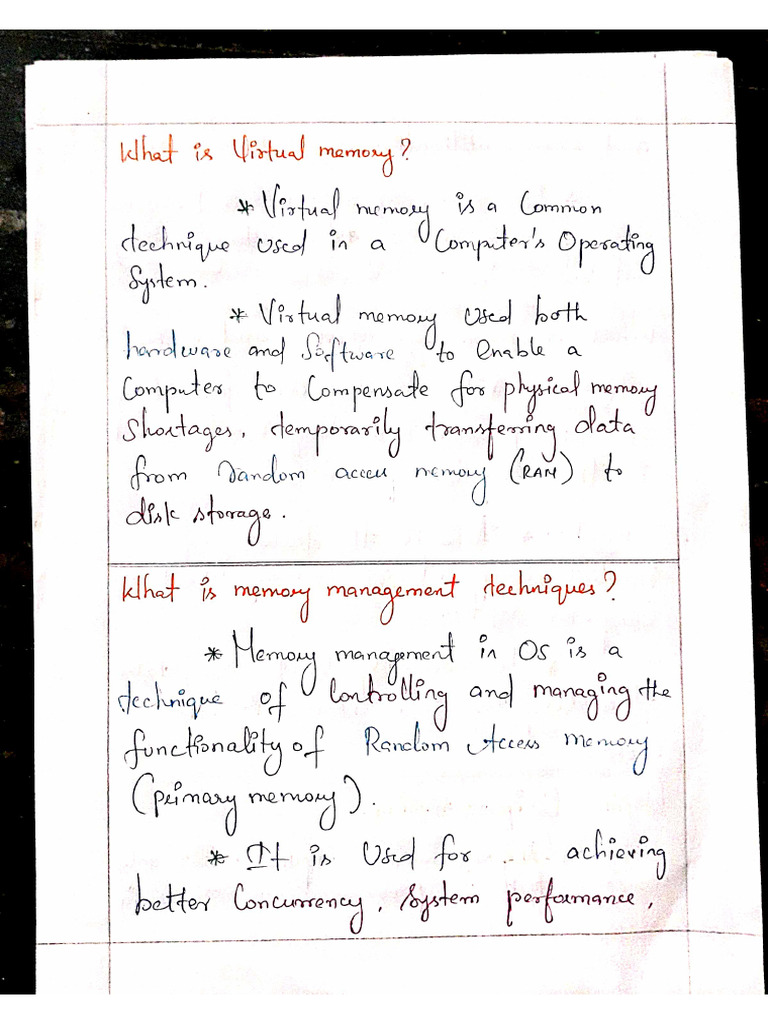 What is Virtual memory?
* Virtual memory is a Common
technique used in a Computer's Operating
System.
* Virtual memory used both
hardware and Software to enable a
Computer to Compensate for physical memory
shortages, temporarily transferring data
from random access memory (RAM) to
disk storage.
What is memory management techniques?
* Memory management in OS is a
technique of Controlling and managing the
functionality of Random Access memory
(primary memory).
* It is used for achieving
better Concurrency, System performance,